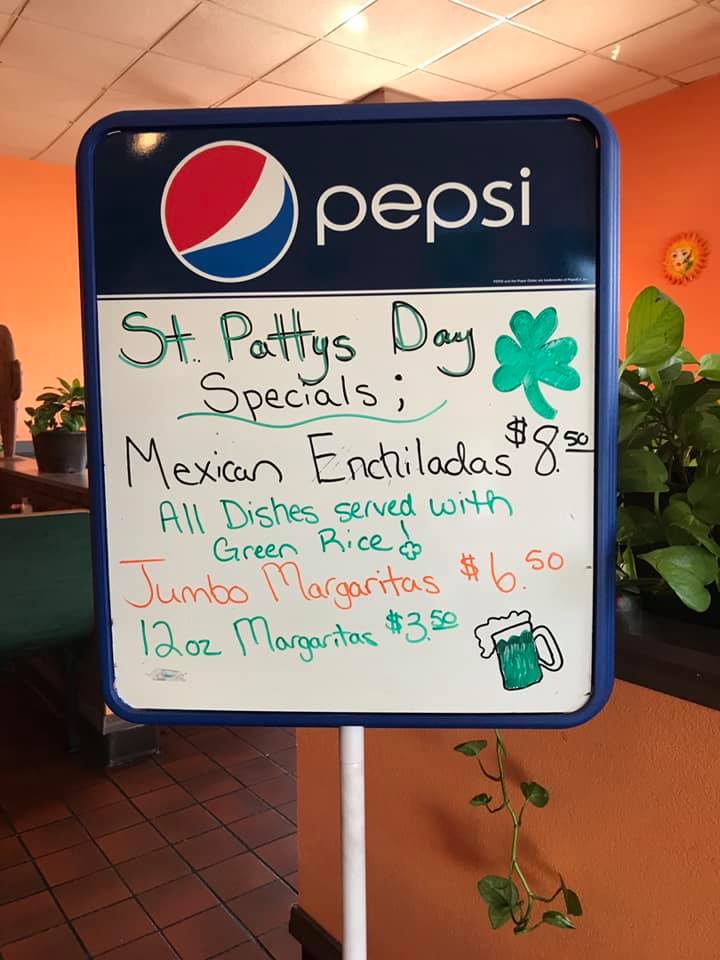 pepsi
St. Pattys Day
Specials;
Mexican Enchiladas $8.50
All Dishes served with
Green Rice!
Jumbo Margaritas $6.50
12oz Margaritas $3.50